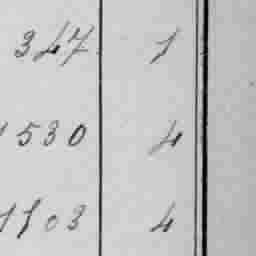 347 1
1530 4
1103 4